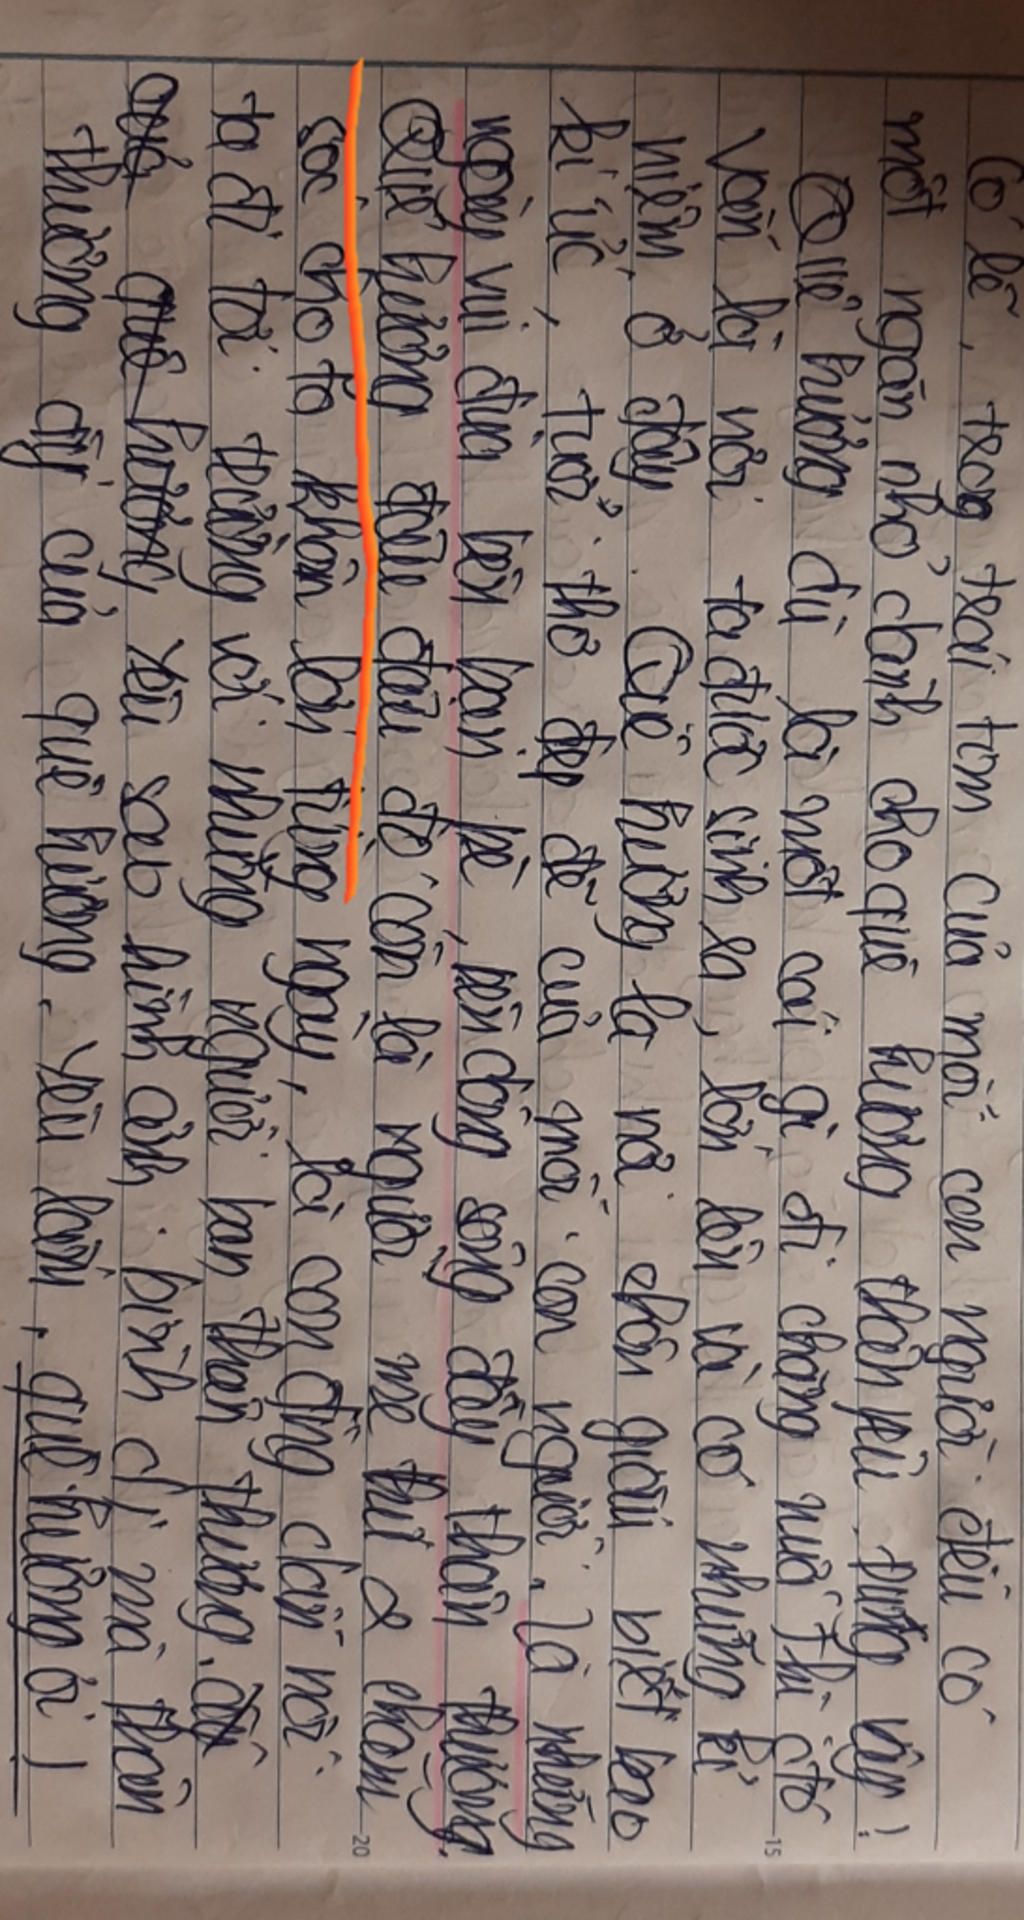 Có lẽ, trong trái tim của mỗi con người đều có
một ngăn nhỏ dành cho quê hương thân yêu, đúng vậy!
Quê hương dù là một cái gì đi chăng nữa thì cố
vốn là nơi ta được sinh ra, lớn lên và có những kỉ
niệm ở đây. Quê hương là nơi chôn giấu biết bao
kí ức, tuổi thơ đẹp đẽ của mỗi con người. Là những
ngày vui đùa bên bạn bè, bên dòng sông đầy thân thương.
Quê hương đâu đâu đó còn là người mẹ thứ 2 chăm
sóc cho ta khôn lớn từng ngày, là con đường dẫn nối
ta đi tới trường với những người bạn thân thương.
quê hương yêu sao hình ảnh bình dị mà thân
thương ấy của quê hương. Yêu lắm, quê hương ơi!
15
20